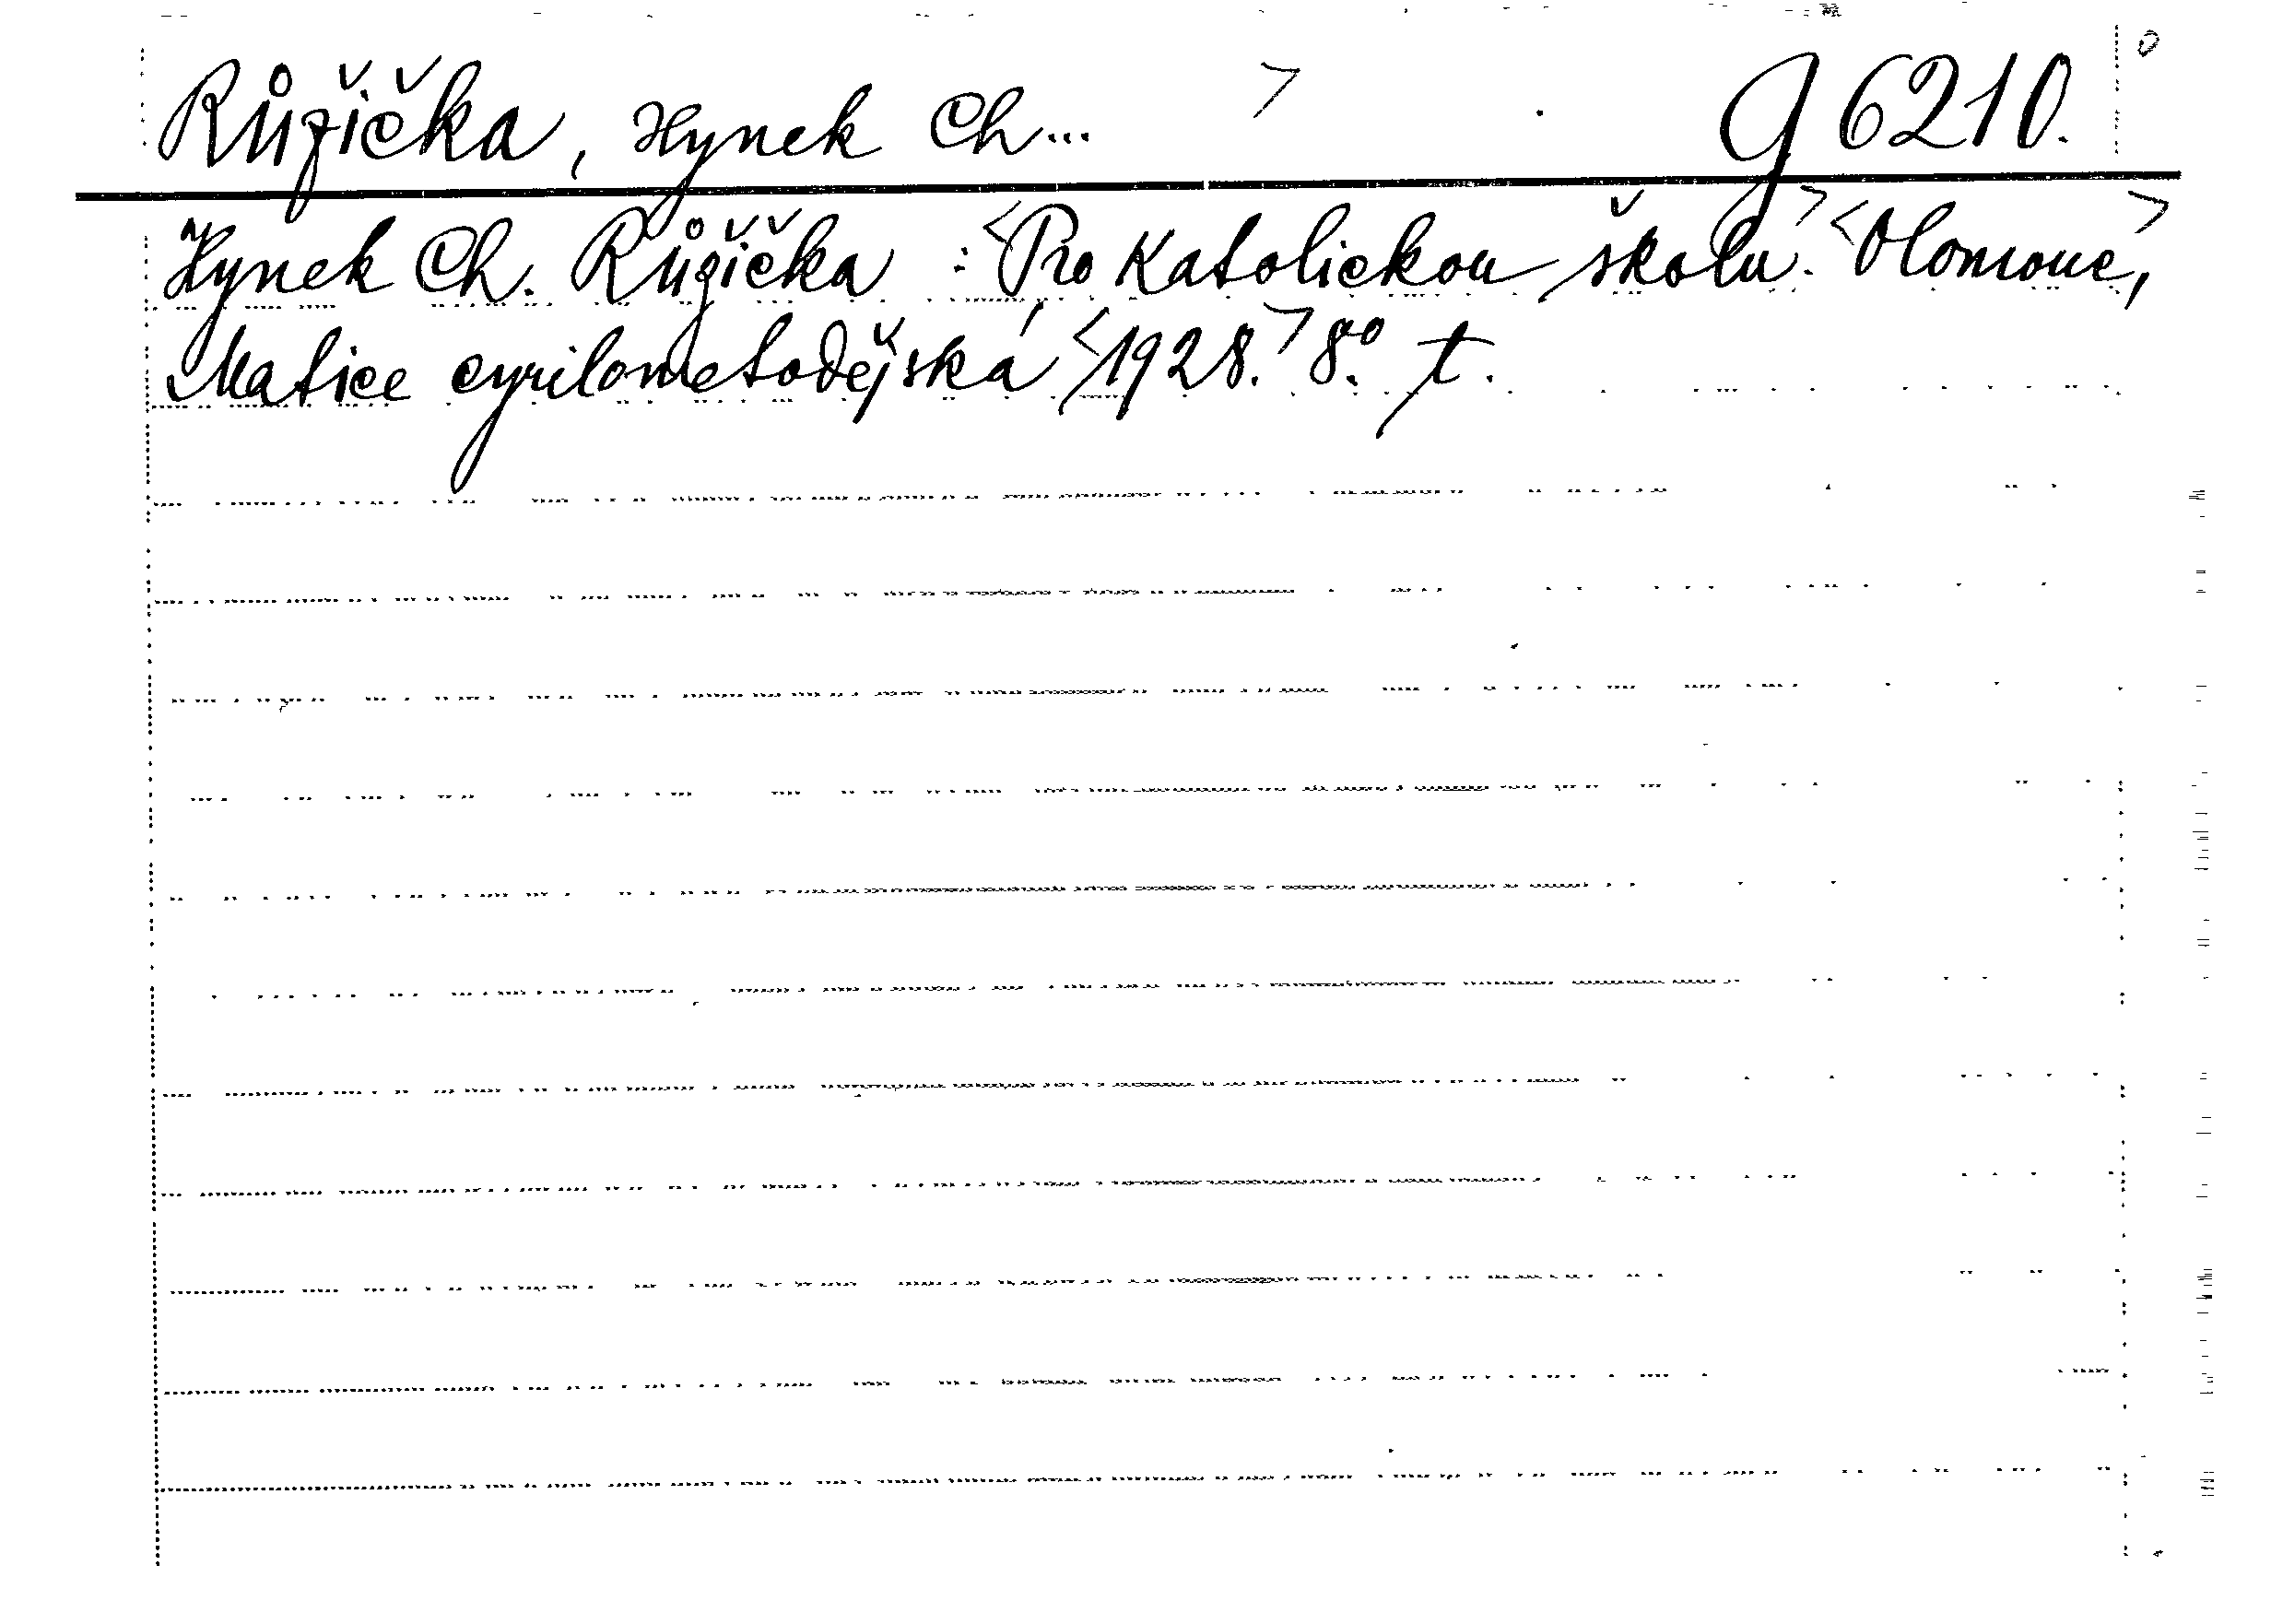 Růžička, Hynek Ch... > g 6210.
Hynek Ch. Růžička : <Pro katolickou školu.> <Olomouc,>
Matice cyrilometodějská <1928.> 8°. t.